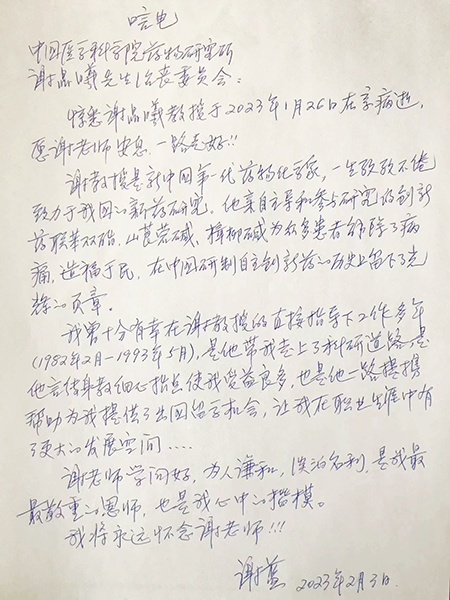 唁电
中国医学科学院药物研究所
谢晶曦先生治丧委员会：
惊悉谢晶曦教授于2023年1月26日在京病逝，
愿谢老师安息，一路走好!!
谢教授是新中国第一代药物化学家，一生孜孜不倦
致力于我国的新药研究。他亲自主导和参与研究的创新
药联苯双酯、山莨菪碱、樟柳碱为众多患者解除了病
痛，造福于民，在中国研制自主创新药的历史上留下了光
辉的页章。
我曾十分有幸在谢教授的直接指导下工作多年
(1982年2月-1993年5月)，是他带我走上了科研道路，是
他言传身教细心指点使我受益良多，也是他一路提携
帮助为我提供了出国留学机会，让我在职业生涯中有
了更大的发展空间....
谢老师学问好，为人谦和，淡泊名利，是我最
最敬重的恩师，也是我心中的楷模。
我将永远怀念谢老师!!!
谢蓝 2023年2月3日